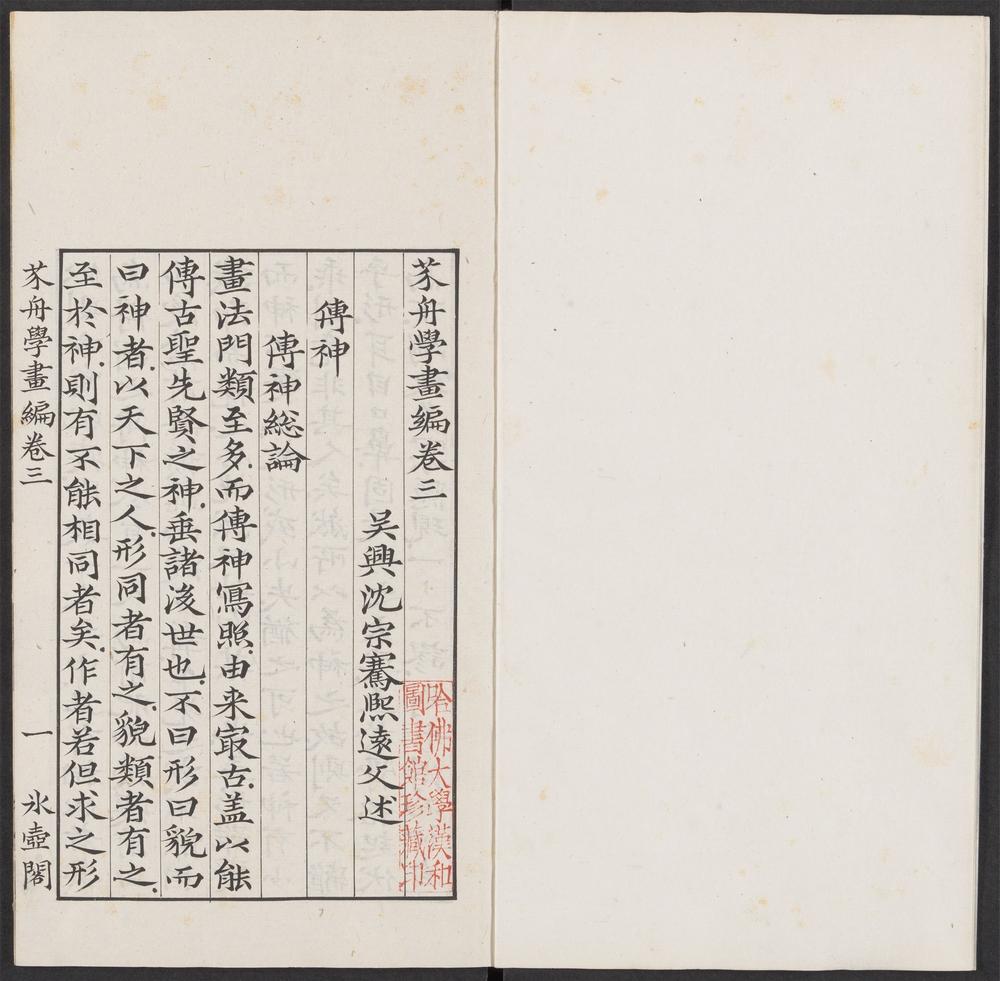 芥舟學畫編卷三
吴興沈宗騫熙遠父述
哈佛大學漢和
圖書館珍藏印
傳神
傳神総論
畫法門類至多.而傳神寫照.由来㝡古.盖以能
傳古聖先賢之神.垂諸後世也.不曰形曰貌而
曰神者.以天下之人.形同者有之.貌類者有之.
至於神.則有不能相同者矣.作者若但求之形
芥舟學畫編卷三
一
氷壺閣